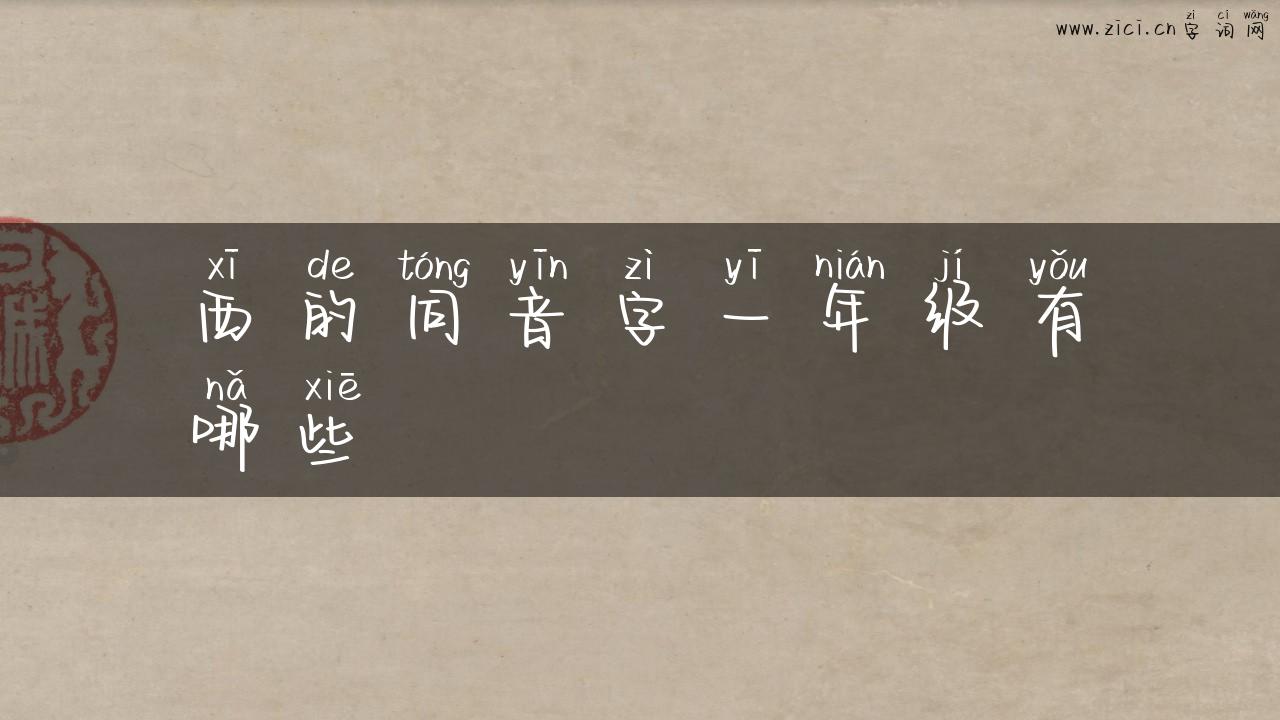 zì cí wǎng
www.zici.cn 字 词 网
xī de tóng yīn zì yī nián jí yǒu
西 的 同 音 字 一 年 级 有
nǎ xiē
哪 些